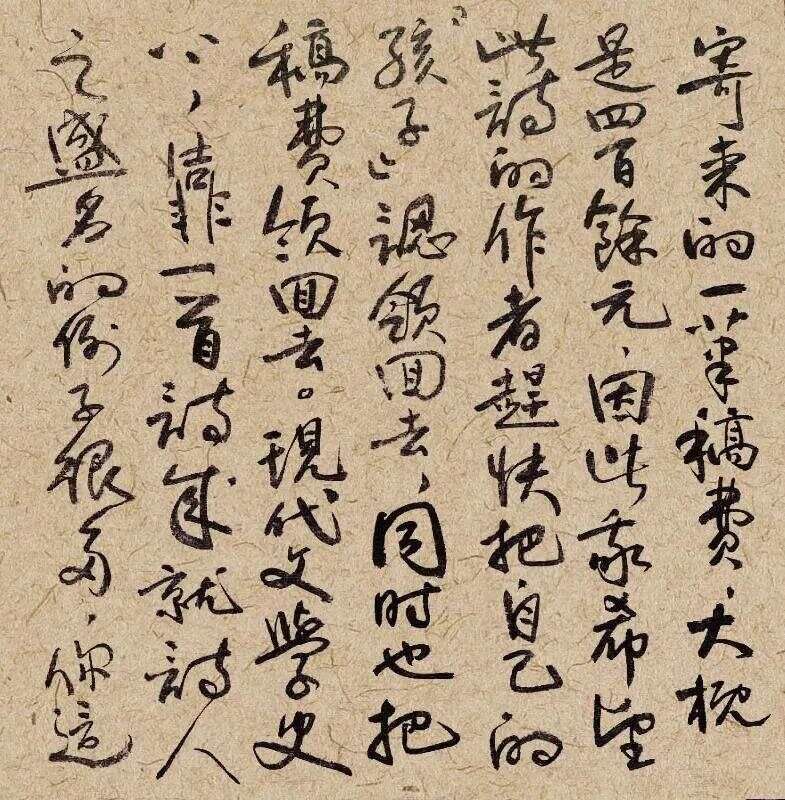 寄来的一筆稿費，大概
是四百餘元，因此我希望
此詩的作者趕快把自己的
「孩子」認領回去，同時也把
稿費領回去。現代文學史
上，靠一首詩成就詩人
之盛名的例子很多，你這